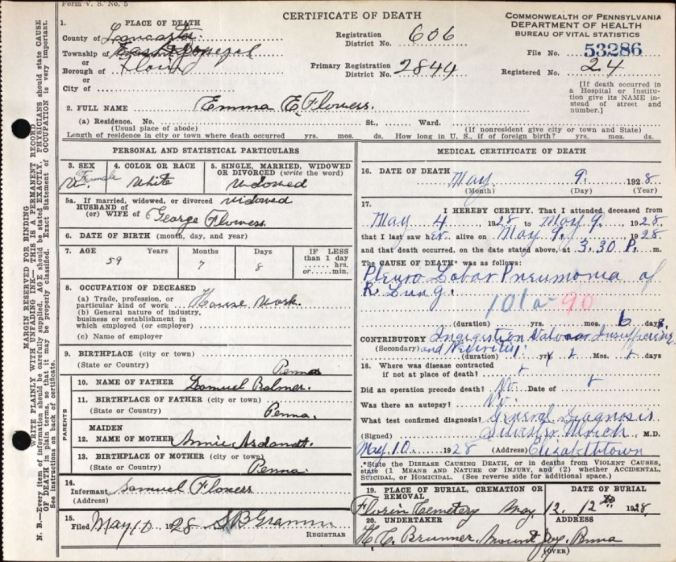 Form V. S. No. 5
CERTIFICATE OF DEATH
COMMONWEALTH OF PENNSYLVANIA
DEPARTMENT OF HEALTH
BUREAU OF VITAL STATISTICS
1. PLACE OF DEATH
County of Lancaster
Township of East Donegal
or
Borough of
or
City of
Registration District No. 606
Primary Registration District No. 2844
File No. 53286
Registered No. 24
[If death occurred in a Hospital or Institution give its NAME instead of street and number.]
2. FULL NAME Emma E. Flowers.
(a) Residence. No. St., Ward.
(Usual place of abode) (If nonresident give city or town and State)
Length of residence in city or town where death occurred yrs. mos. ds. How long in U. S., if of foreign birth? yrs. mos. ds.
PERSONAL AND STATISTICAL PARTICULARS
3. SEX Female
4. COLOR OR RACE White
5. SINGLE, MARRIED, WIDOWED OR DIVORCED (write the word) Widowed
5a. If married, widowed, or divorced widowed
HUSBAND of
(or) WIFE of George Flowers.
6. DATE OF BIRTH (month, day, and year)
7. AGE Years 59 Months 7 Days 8 IF LESS than 1 day, hrs. or min.
8. OCCUPATION OF DECEASED
(a) Trade, profession, or particular kind of work House Work
(b) General nature of industry, business or establishment in which employed (or employer)
(c) Name of employer
9. BIRTHPLACE (city or town)
(State or Country) Penna
PARENTS
10. NAME OF FATHER Samuel Balmer.
11. BIRTHPLACE OF FATHER (city or town)
(State or Country) Penna.
12. MAIDEN NAME OF MOTHER Annie
13. BIRTHPLACE OF MOTHER (city or town)
(State or Country) Penna
14. Informant Samuel Flowers
(Address)
15. Filed May 10 1928 S B Gramm
REGISTRAR
MEDICAL CERTIFICATE OF DEATH
16. DATE OF DEATH May 9. 1928
(Month) (Day) (Year)
17. I HEREBY CERTIFY, That I attended deceased from
May 4 1928 to May 9. 1928
that I last saw her alive on May 9. 1928
and that death occurred, on the date stated above, at 3.30 P. m.
The CAUSE OF DEATH* was as follows:
Pleuro Lobar Pneumonia of
R Lung.
101a-90
(duration) yrs. mos. 6 days.
CONTRIBUTORY
(Secondary) and
(duration) yrs. mos. ds.
18. Where was disease contracted
if not at place of death?
Did an operation precede death? No Date of
Was there an autopsy? No.
What test confirmed diagnosis? General Diagnosis
(Signed) M.D.
May 10. 1928 (Address) Elizabethtown
*State the DISEASE CAUSING DEATH, or in deaths from VIOLENT CAUSES, state (1) MEANS AND NATURE OF INJURY, and (2) whether ACCIDENTAL, SUICIDAL, or HOMICIDAL. (See reverse side for additional space.)
19. PLACE OF BURIAL, CREMATION OR REMOVAL DATE OF BURIAL
Florin Cemetery May 12. 1928
20. UNDERTAKER ADDRESS
H. C. Brunner, Mount Joy, Penna
(OVER)
MARGIN RESERVED FOR BINDING
WRITE PLAINLY WITH UNFADING INK. THIS IS A PERMANENT RECORD
N. B.—Every item of information should be carefully supplied. AGE should be stated EXACTLY. PHYSICIANS should state CAUSE OF DEATH in plain terms, so that it may be properly classified. Exact Statement of OCCUPATION is very important. See instructions on back of certificate.